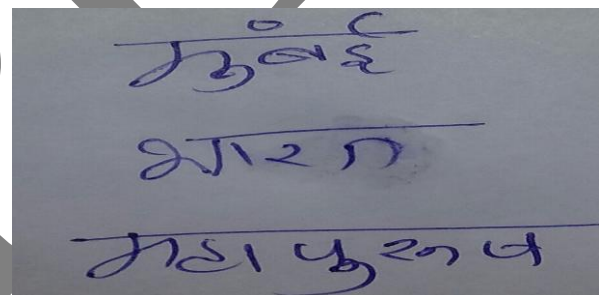 मुंबई
भारत
महापुरूष